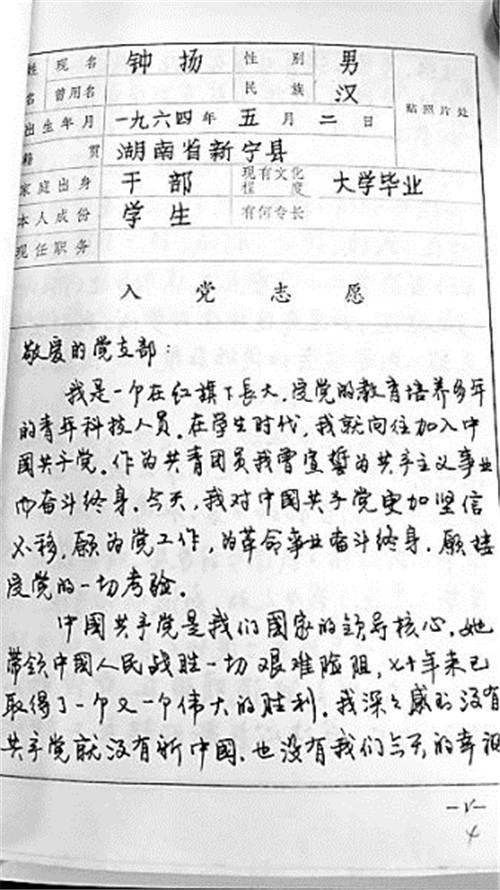 姓 现名 钟扬 性别 男
名 曾用名 民族 汉
出生年月 一九六四年 五月二日 贴照片处
籍贯 湖南省新宁县
家庭出身 干部 现有文化程度 大学毕业
本人成份 学生 有何专长
现任职务
入党志愿
敬爱的党支部：
我是一个在红旗下長大、受党的教育培养多年
的青年科技人员。在学生时代，我就向往加入中
國共产党。作为共青团员我曾宣誓为共产主义事业
而奋斗终身。今天，我对中國共产党更加坚信
不移，愿为党工作，为革命事业奋斗终身，愿接
受党的一切考验。
中國共产党是我们國家的领导核心，她
带领中國人民战胜一切艰难险阻，六十年来已
取得了一个又一个伟大的胜利。我深深感到没有
共产党就没有新中國，也没有我们今天的幸福
4